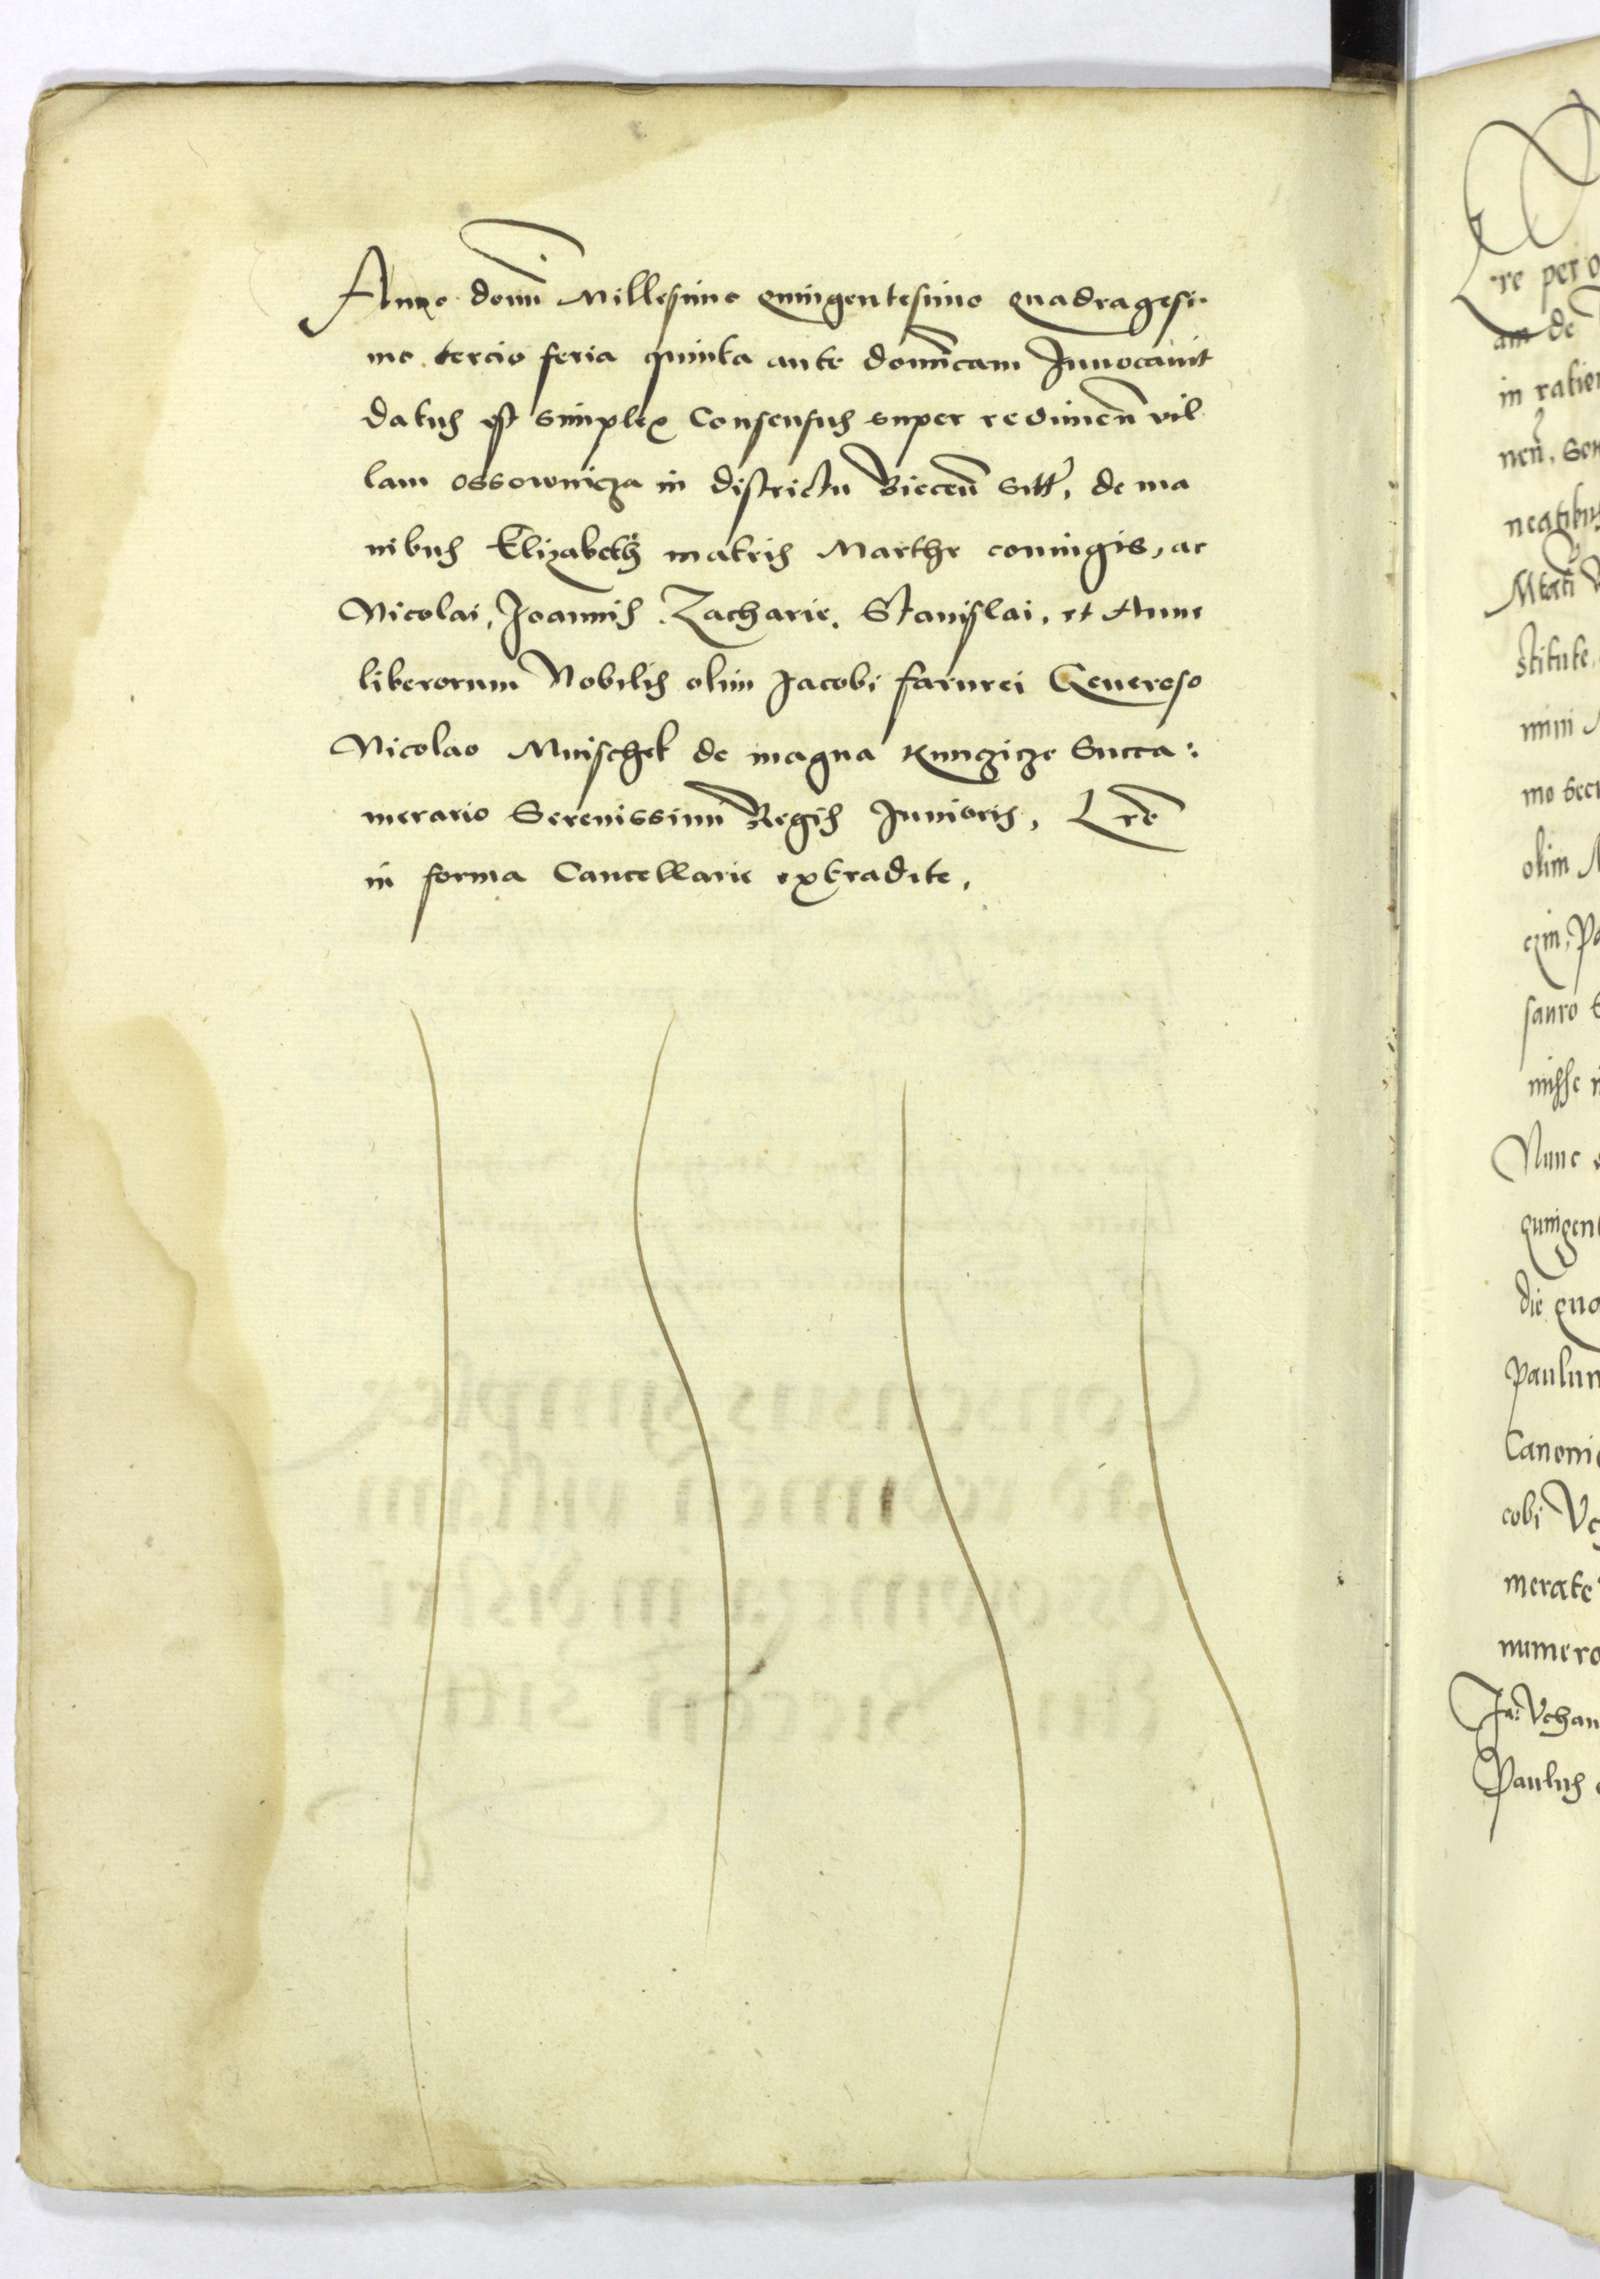 Anno domī Millesimo quingentesimo quadragesi
mo tercio feria quinta ante domīcam Inuocauit
datus est simplex Consensus super redimeñ vil
lam ossownicza in districtu Bieceñ sitt, de ma
nibus Elizabeth matris Marthe coniugis, ac
Nicolai, Joannis Zacharie, Stanislai, et Anne
liberorum Nobilis olim Jacobi farurei Generoso
Nicolao Mnischek de magna Kunczicze Succa:
merario Serenissimi Regis Junioris, Lrē
in forma Cancellarie extradite,
re per o
am de
in ration
neñ, Se
Mtati
stitute
mini
mo sec
olim
czin, Pa
sauro
misse
Nunc
quingen
die qua
Paulum
Canoni
cobi
merate
numero
Ja: Vchan
Paulus